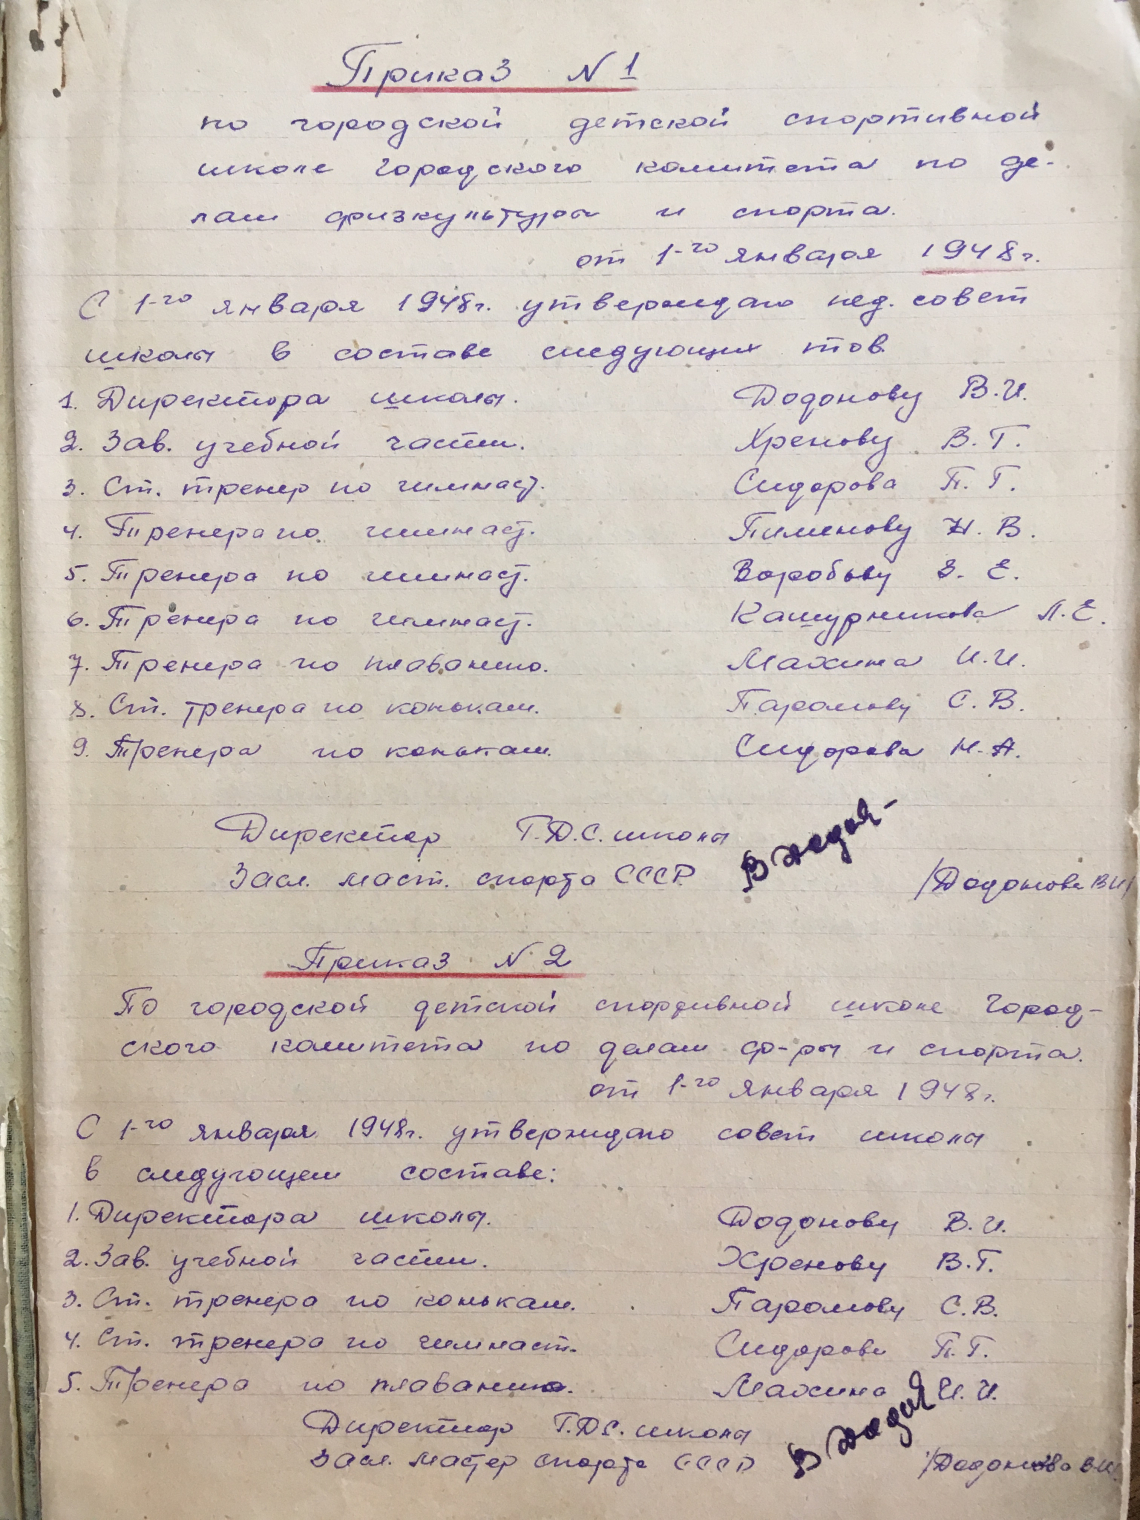 Приказ N 1
по городской детской спортивной
школе городского комитета по де-
лам физкультуры и спорта.
от 1-го января 1948 г.
С 1-го января 1948 г. утверждаю пед. совет
школы в составе следующих тов.
1. Директора школы. Додонову В.И.
2. Зав. учебной части. Хренову В.Г.
3. Ст. тренер по гимнаст. Сидорова П.Г.
4. Тренера по гимнаст. Пименову Н.В.
5. Тренера по гимнаст. Воробьву З.Е.
6. Тренера по гимнаст. Кашурникова Л.Е.
7. Тренера по плаванию. Махина И.И.
8. Ст. тренера по конькам. Парамову С.В.
9. Тренера по конькам. Сидорова Н.А.
Директор Г.Д.С. школы
Засл. маст. спорта СССР /Додонова В.И/
Приказ N 2
По городской детской спортивной школе Город-
ского комитета по делам ф-ры и спорта.
от 1-го января 1948 г.
С 1-го января 1948 г. утверждаю совет школы
в следующем составе:
1. Директора школы. Додонову В.И.
2. Зав. учебной части. Хренову В.Г.
3. Ст. тренера по конькам. Парамову С.В.
4. Ст. тренера по гимнаст. Сидорова П.Г.
5. Тренера по плаванию. Махина И.И.
Директор Г.Д.С. школы
Засл. мастер спорта СССР /Додонова В.И/